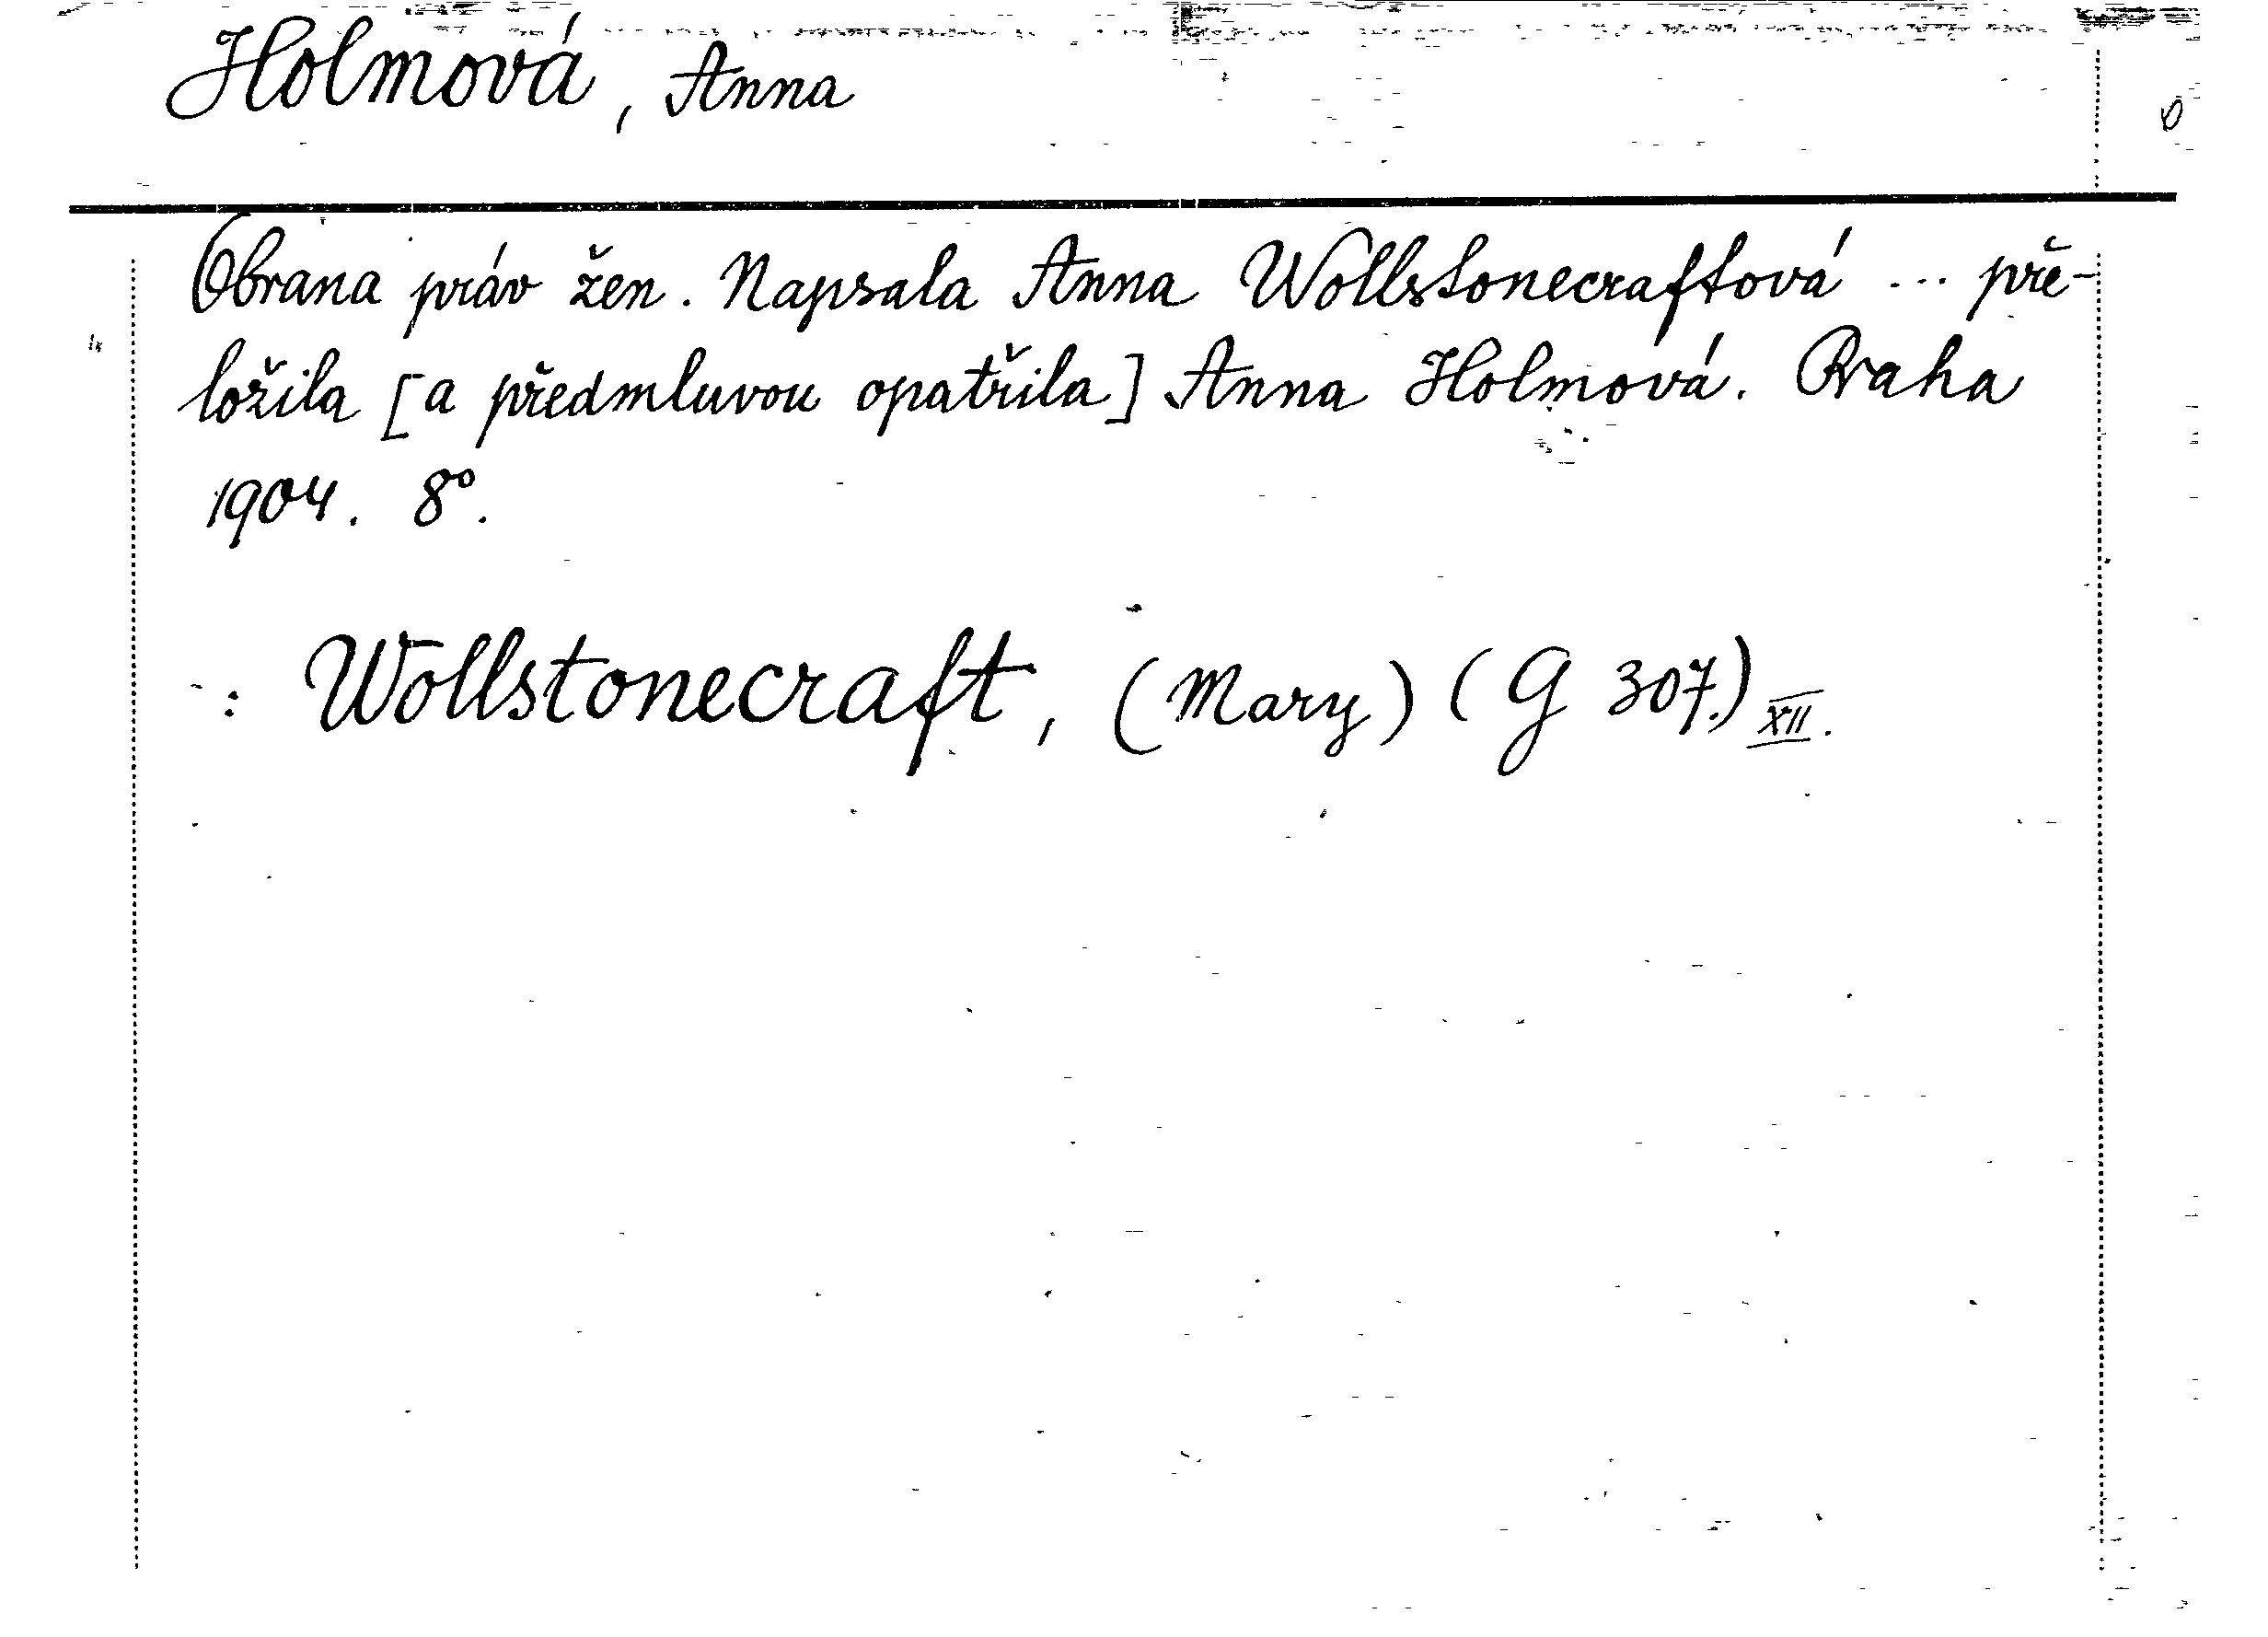 Holmová, Anna
Obrana práv žen. Napsala Anna Wollstonecraftová ... pře-
ložila [a předmluvou opatřila] Anna Holmová. Praha
1904. 8°.
: Wollstonecraft, (Mary) (G 307.) XII.